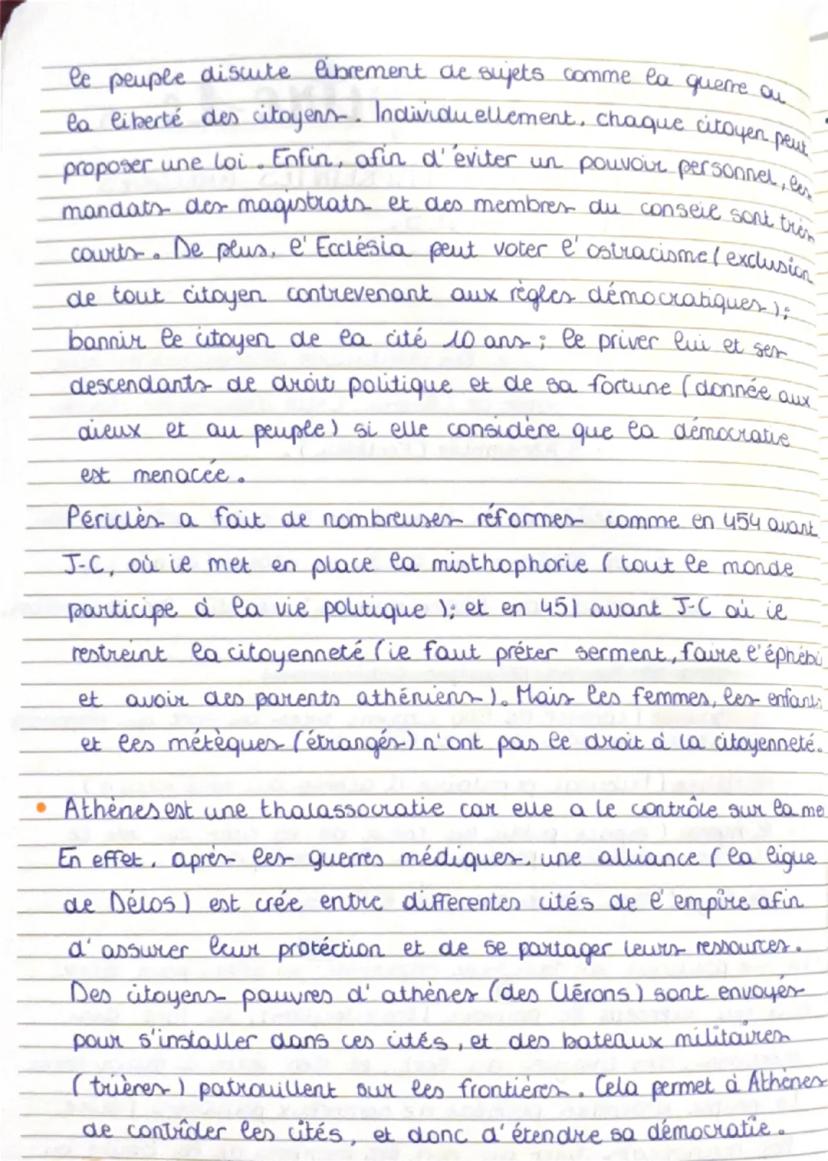 le peuple discute librement de sujets comme la guerre ou
la liberté des citoyens. Individuellement, chaque citoyen peut
proposer une loi. Enfin, afin d'éviter un pouvoir personnel, les
mandats des magistrats et des membres du conseil sont très
courts. De plus, l'Ecclésia peut voter l'ostracisme (exclusion
de tout citoyen contrevenant aux règles démocratiques);
bannir le citoyen de la cité 10 ans; le priver lui et ses
descendants de droit politique et de sa fortune (donnée aux
dieux et au peuple) si elle considère que la démocratie
est menacée.
Périclès a fait de nombreuses réformes comme en 454 avant
J-C, où il met en place la misthophorie (tout le monde
participe à la vie politique); et en 451 avant J-C où il
restreint la citoyenneté (il faut prêter serment, faire l'éphébi
et avoir des parents athéniens). Mais les femmes, les enfants
et les métèques (étrangés) n'ont pas le droit à la citoyenneté.
• Athènes est une thalassocratie car elle a le contrôle sur la me
En effet, après les guerres médiques, une alliance (la ligue
de Délos) est crée entre differentes cités de l'empire afin
d'assurer leur protéction et de se partager leurs ressources.
Des citoyens pauvres d'athènes (des Clérons) sont envoyés
pour s'installer dans ces cités, et des bateaux militaires
(trières) patrouillent sur les frontières. Cela permet à Athènes
de contrôler les cités, et donc d'étendre sa démocratie.